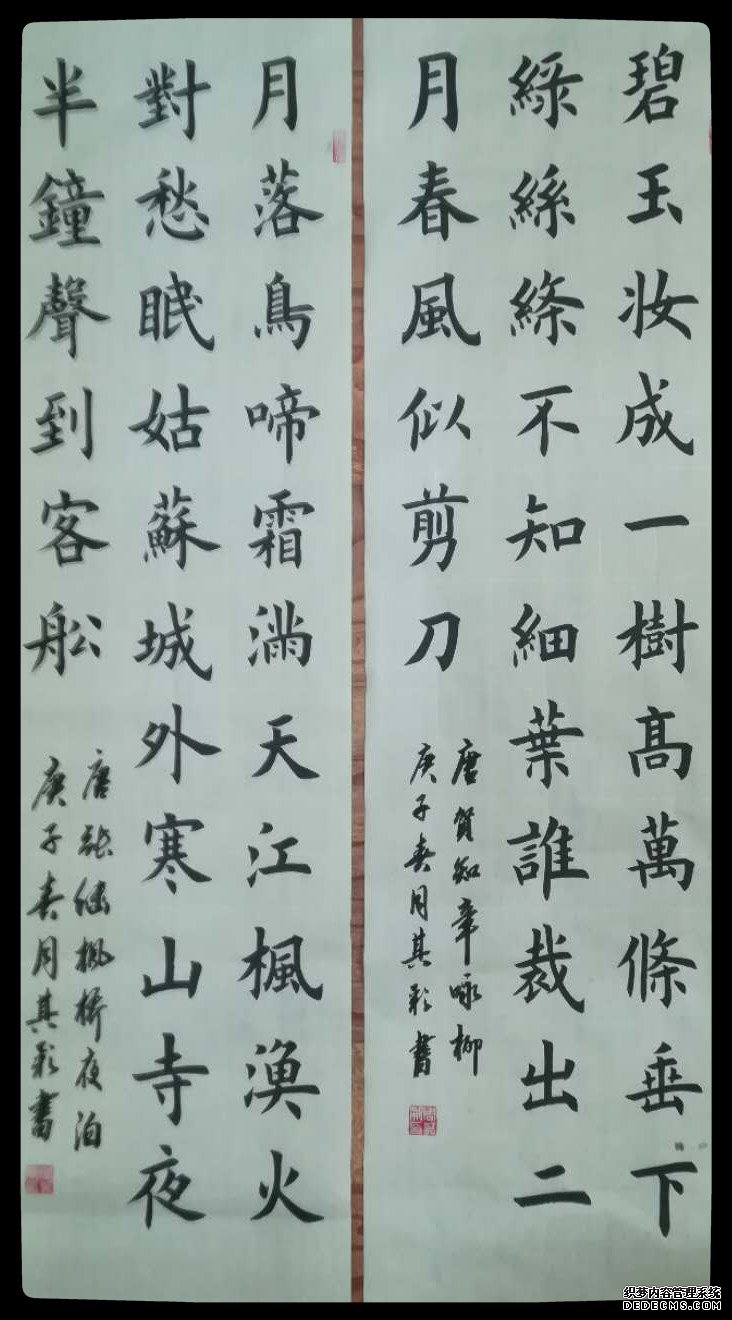 碧玉妆成一樹髙萬條垂下
綠絲絛不知細葉誰裁出二
月春風似剪刀
唐賀知章咏柳
庚子春月其彩書
月落鳥啼霜滿天江楓漁火
對愁眠姑蘇城外寒山寺夜
半鐘聲到客舩
唐張继楓橋夜泊
庚子春月其彩書
织梦内容管理系统
DEDECMS.COM